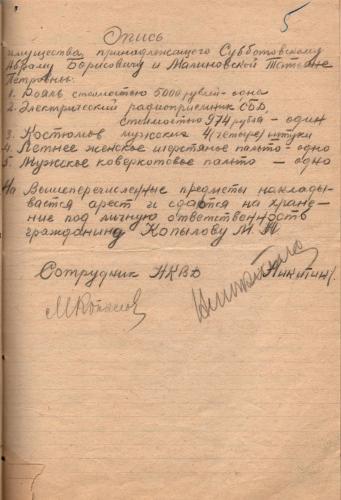 5
Опись
имущества, принадлежащего Субботовскому
Авраму Борисовичу и Малиновской Татьяне
Петровны:
1. Рояль стоимостью 5000 рублей - один
2. Электрический радиоприемник СВД,
стоимостью 974 рубля - один
3. Костюмов мужских 4 (четыре) штуки
4. Летнее женское шерстяное пальто - одно
5. Мужское коверкотовое пальто - одно
На вышеперечисленные предметы наклады-
вается арест и сдается на хране-
ние под личную ответственность
гражданину Копылову М.
Сотрудник НКВД Никитин
МКопылов